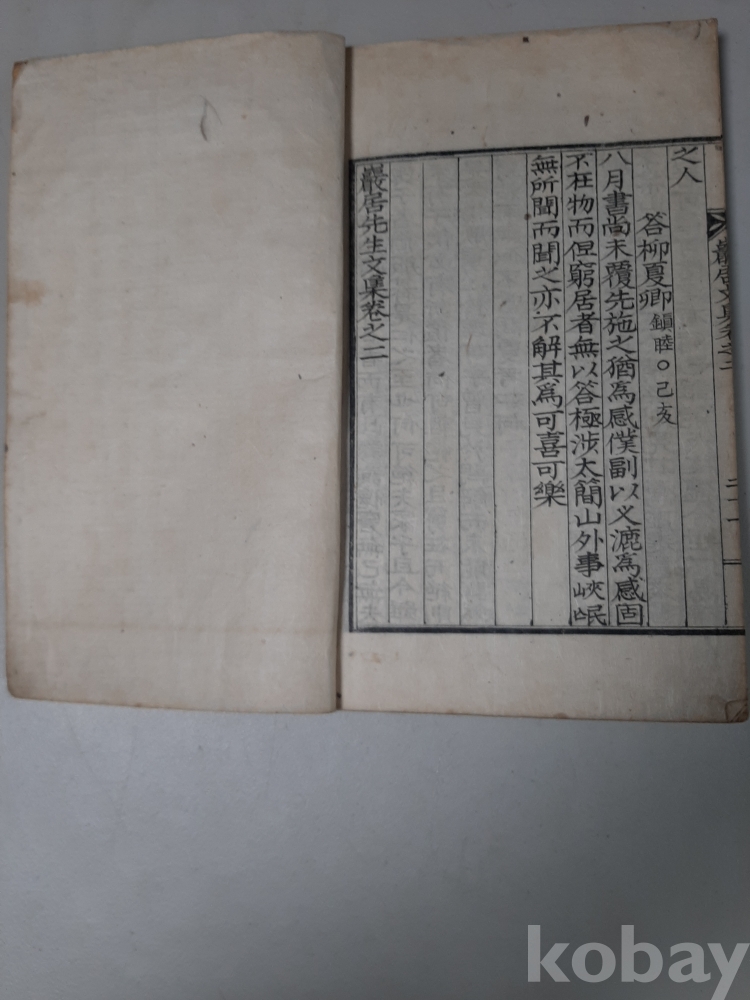 巖居文集卷之二
二十一
之人
答柳夏卿鎭睦○己亥
八月書尚未覆先施之猶爲感僕副以义漉爲感固
不在物而但窮居者無以答極涉太簡山外事峽氓
無所聞而聞之亦不解其爲可喜可樂
巖居先生文集卷之二
kobay